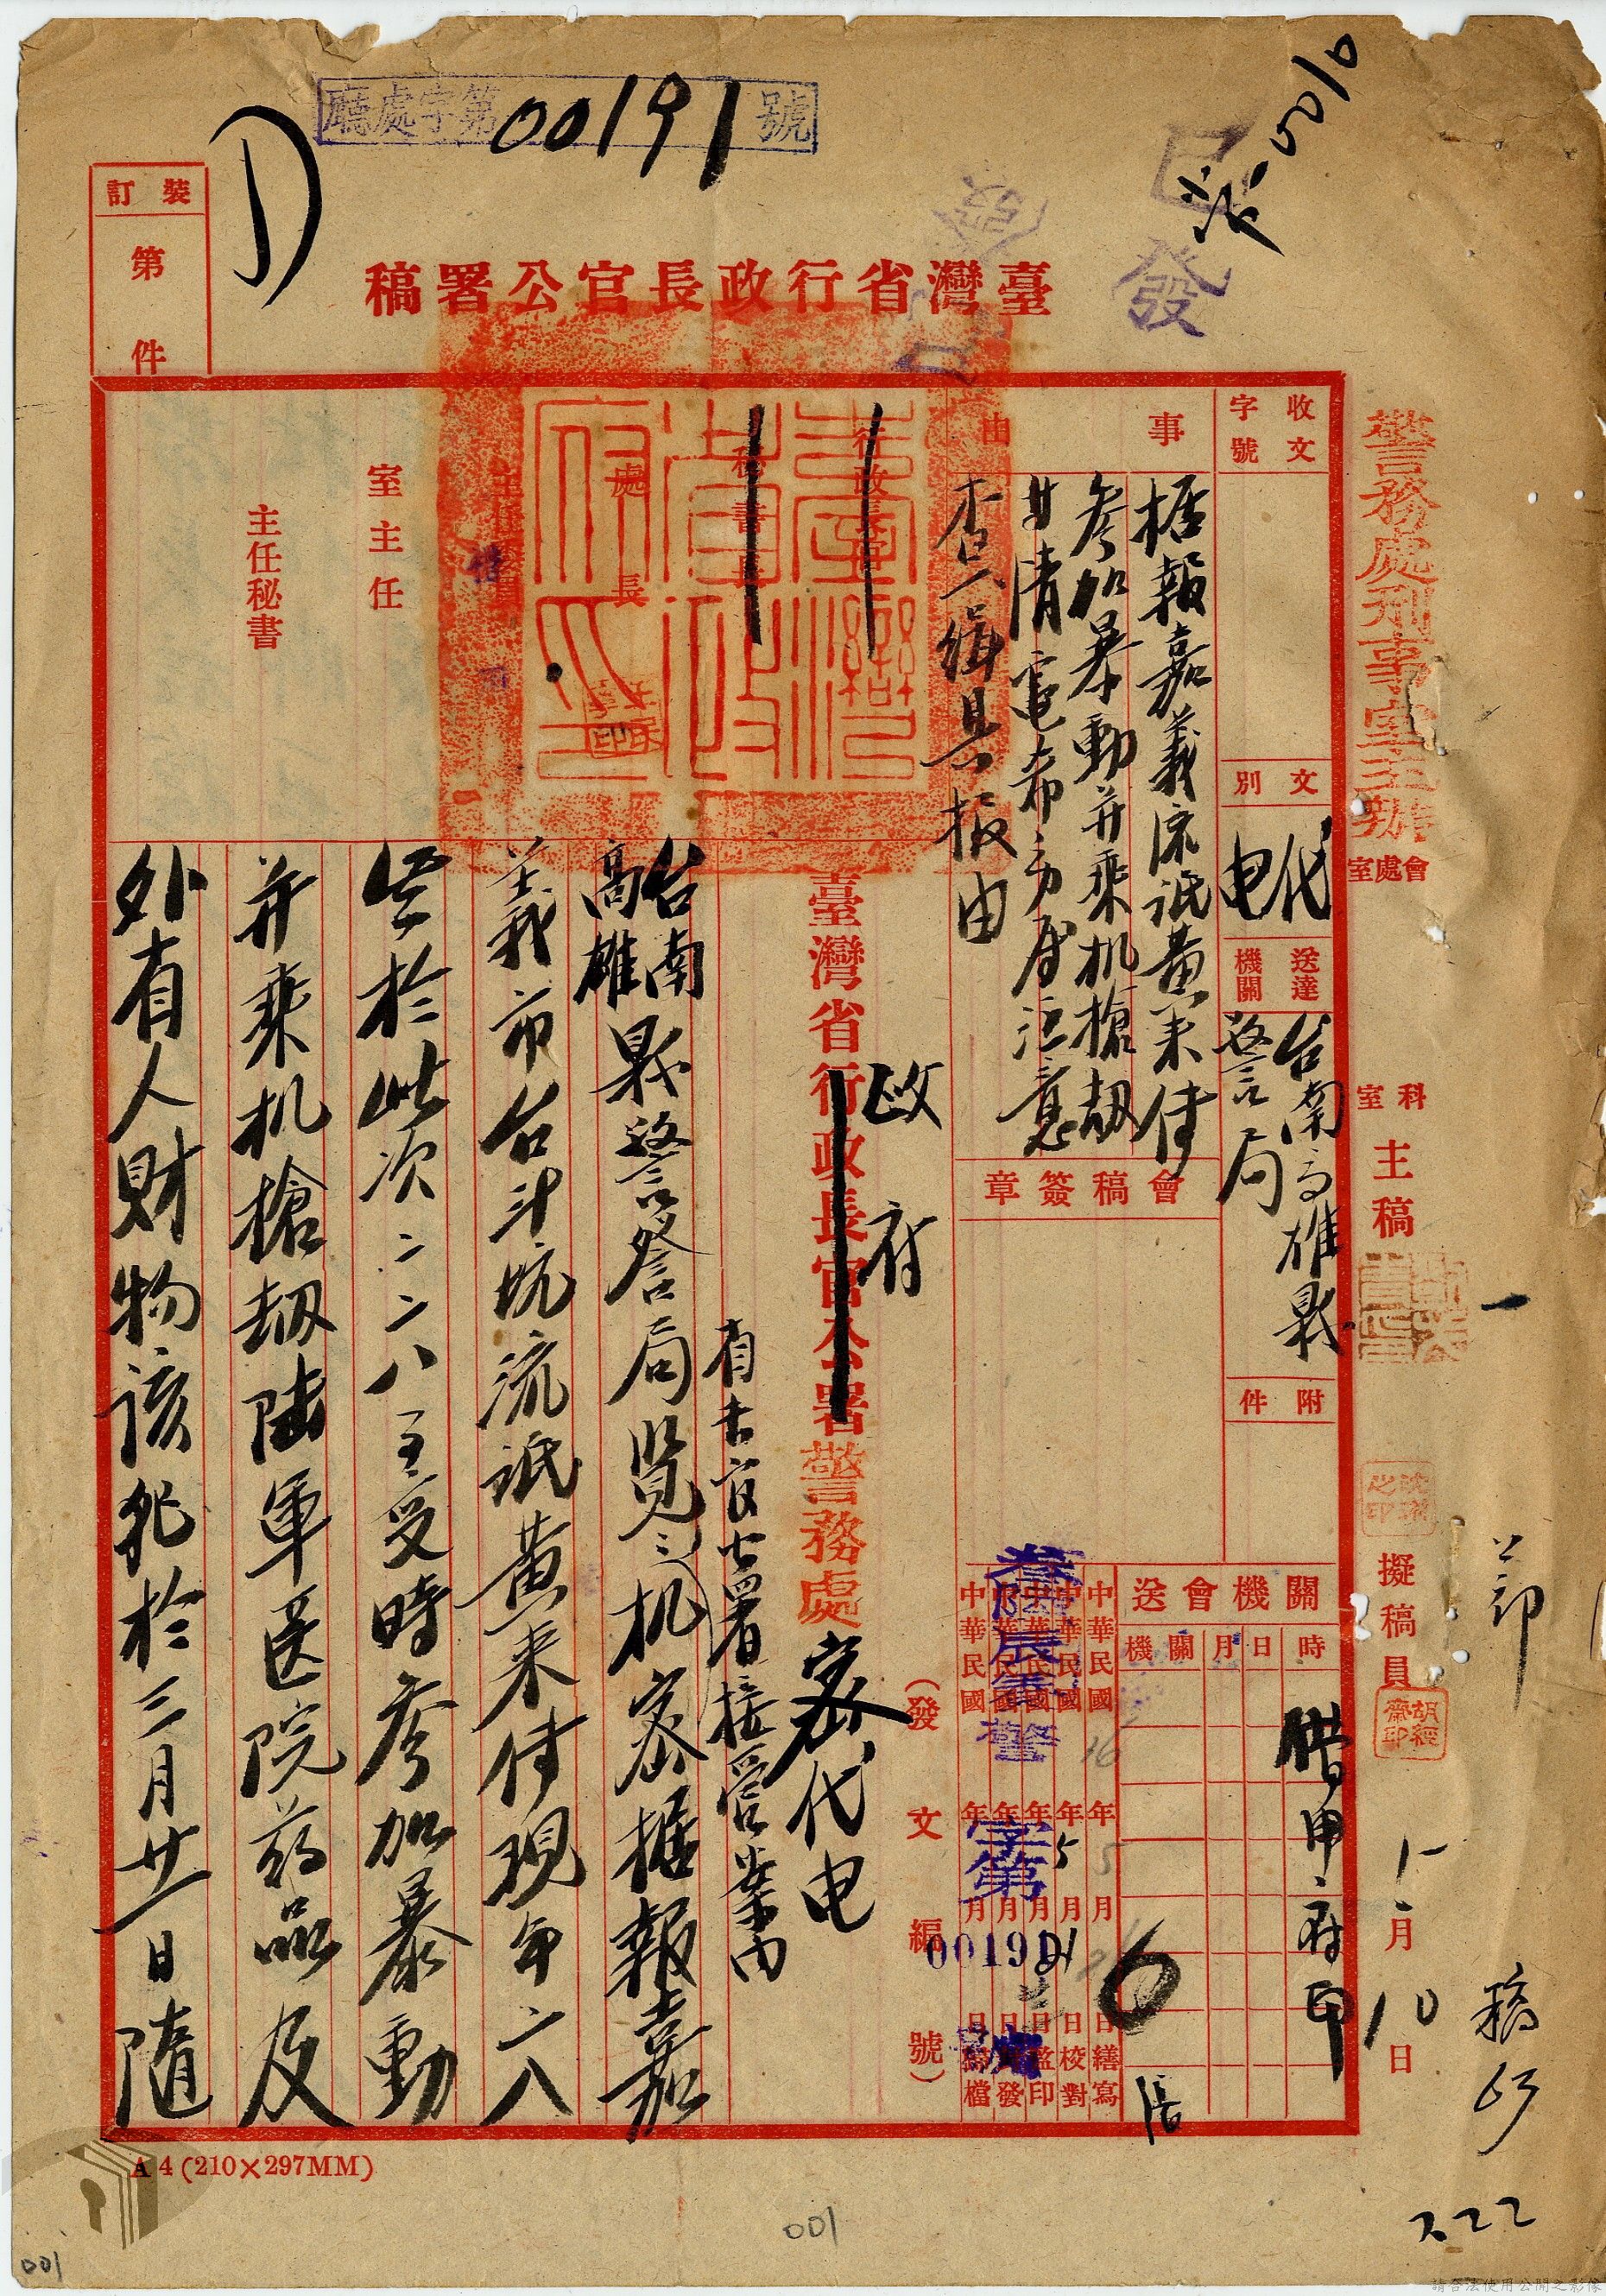 廳處字第00191號
裝訂
第
件
臺灣省行政長官公署稿
已發
警務處刑事室主辦
會處室
科室
主稿
擬稿員
胡經齋印
月10日
收文
字號
文別
代电
送達機關
台南高雄縣
警局
附件
事由
据報嘉義流氓黄来传
参加暴動并乘机搶刼
廿情電希
查緝具报由
會稿簽章
行政長官
秘書長
處長
主任委員
室主任
主任秘書
臺灣省政府印
關機會送
時日月關機
中華民國 年 月 日繕寫
中華民國 年 月 日校對
中華民國 年 月 日盖印
中華民國 年 月 日封發
中華民國 年 月 日歸檔
16
5
6
叁陸辰 警
字第
00191
號
(發文編號)
臺灣省行政長官公署警務處
政府
密代电
有未官公署接管案内
台南
高雄
縣警察局览：机密据報嘉
義市台斗坑流氓黄来传現年二八
岁於此次二二八事変時参加暴動
并乘机搶刼陆軍医院葯品及
外省人財物該犯於三月廿一日隨
A4(210×297MM)
001
001
請合法使用公開之影像